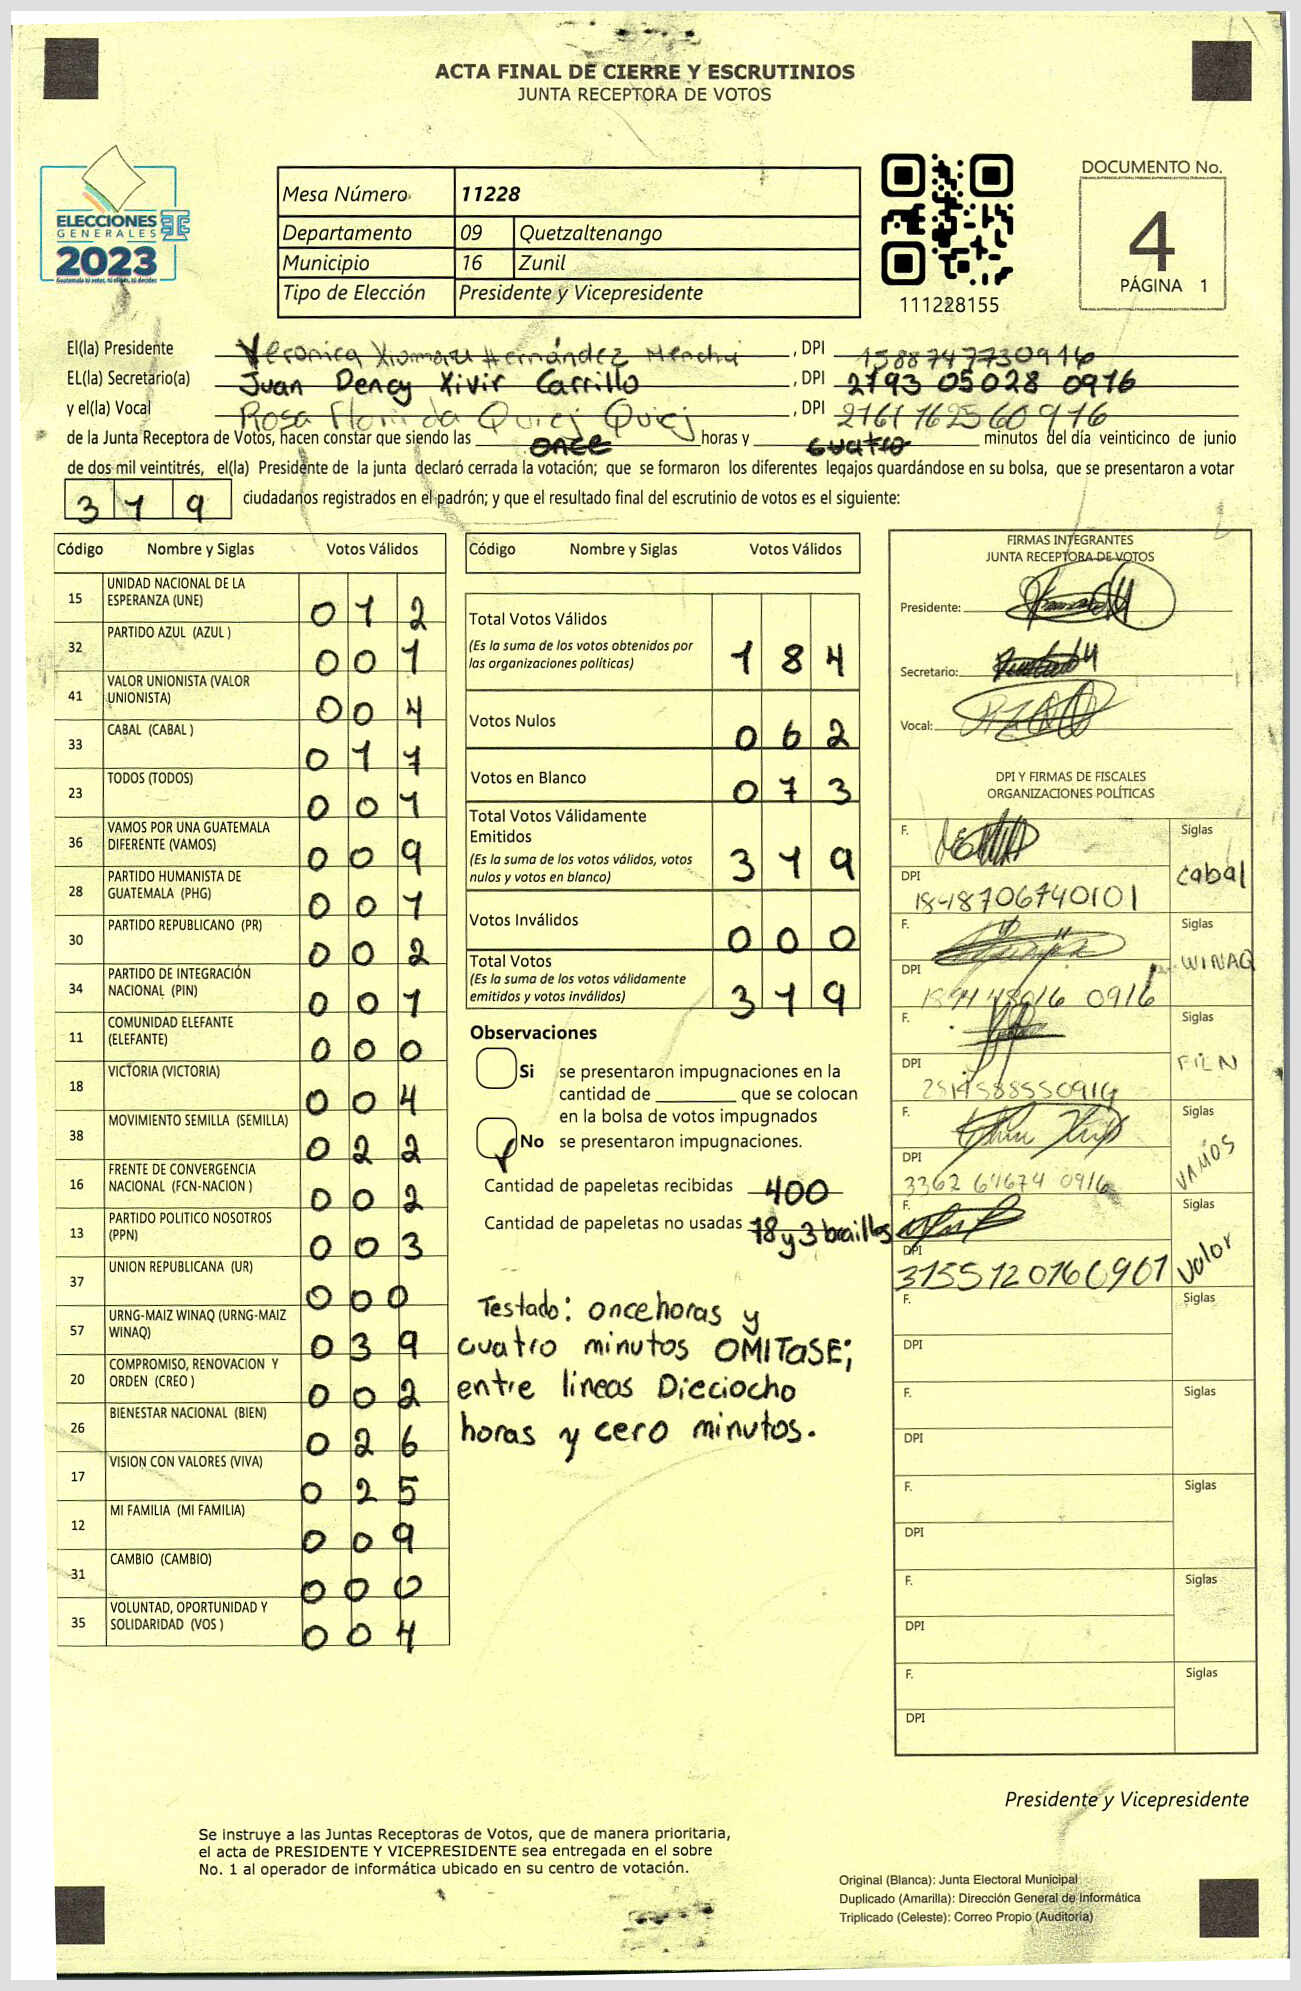 ACTA FINAL DE CIERRE Y ESCRUTINIOS
JUNTA RECEPTORA DE VOTOS
ELECCIONES
GENERALES
2023
Mesa Número 11228
Departamento 09 Quetzaltenango
Municipio 16 Zunil
Tipo de Elección Presidente y Vicepresidente
111228155
DOCUMENTO No.
4
PÁGINA 1
El(la) Presidente Veronica Xiomara Hernández Menchú, DPI 1588747730916
EL(la) Secretario(a) Juan Dency Xivir Carrillo, DPI 2193 05028 0916
y el(la) Vocal Rosa Florinda Quiej Quiej, DPI 2161762560916
de la Junta Receptora de Votos, hacen constar que siendo las once horas y cuatro minutos del día veinticinco de junio
de dos mil veintitrés, el(la) Presidente de la junta declaró cerrada la votación; que se formaron los diferentes legajos guardándose en su bolsa, que se presentaron a votar
319 ciudadanos registrados en el padrón; y que el resultado final del escrutinio de votos es el siguiente:
Código Nombre y Siglas Votos Válidos
15 UNIDAD NACIONAL DE LA ESPERANZA (UNE) 012
32 PARTIDO AZUL (AZUL ) 001
41 VALOR UNIONISTA (VALOR UNIONISTA) 004
33 CABAL (CABAL ) 017
23 TODOS (TODOS) 001
36 VAMOS POR UNA GUATEMALA DIFERENTE (VAMOS) 009
28 PARTIDO HUMANISTA DE GUATEMALA (PHG) 001
30 PARTIDO REPUBLICANO (PR) 002
34 PARTIDO DE INTEGRACIÓN NACIONAL (PIN) 001
11 COMUNIDAD ELEFANTE (ELEFANTE) 000
18 VICTORIA (VICTORIA) 004
38 MOVIMIENTO SEMILLA (SEMILLA) 022
16 FRENTE DE CONVERGENCIA NACIONAL (FCN-NACION ) 002
13 PARTIDO POLITICO NOSOTROS (PPN) 003
37 UNION REPUBLICANA (UR) 000
57 URNG-MAIZ WINAQ (URNG-MAIZ WINAQ) 039
20 COMPROMISO, RENOVACION Y ORDEN (CREO ) 002
26 BIENESTAR NACIONAL (BIEN) 026
17 VISION CON VALORES (VIVA) 025
12 MI FAMILIA (MI FAMILIA) 009
31 CAMBIO (CAMBIO) 000
35 VOLUNTAD, OPORTUNIDAD Y SOLIDARIDAD (VOS ) 004
Código Nombre y Siglas Votos Válidos
Total Votos Válidos 184
(Es la suma de los votos obtenidos por
las organizaciones políticas)
Votos Nulos 062
Votos en Blanco 073
Total Votos Válidamente
Emitidos 319
(Es la suma de los votos válidos, votos
nulos y votos en blanco)
Votos Inválidos 000
Total Votos 319
(Es la suma de los votos válidamente
emitidos y votos inválidos)
Observaciones
Si se presentaron impugnaciones en la
cantidad de ________ que se colocan
en la bolsa de votos impugnados
No se presentaron impugnaciones.
Cantidad de papeletas recibidas 400
Cantidad de papeletas no usadas 78 y 3 brailles
Testado: once horas y
cuatro minutos OMITASE;
entre lineas Dieciocho
horas y cero minutos.
FIRMAS INTEGRANTES
JUNTA RECEPTORA DE VOTOS
Presidente:
Secretario:
Vocal:
DPI Y FIRMAS DE FISCALES
ORGANIZACIONES POLÍTICAS
F. Siglas
DPI 1848706740101 cabal
F. Siglas
DPI 0916 WINAQ
F. Siglas
DPI FILN
F. Siglas
DPI 3362 64674 0916 VAMOS
F. Siglas
DPI 3155120160901 Valor
F. Siglas
DPI
F. Siglas
DPI
F. Siglas
DPI
F. Siglas
DPI
F. Siglas
DPI
Presidente y Vicepresidente
Se instruye a las Juntas Receptoras de Votos, que de manera prioritaria,
el acta de PRESIDENTE Y VICEPRESIDENTE sea entregada en el sobre
No. 1 al operador de informática ubicado en su centro de votación.
Original (Blanca): Junta Electoral Municipal
Duplicado (Amarilla): Dirección General de Informática
Triplicado (Celeste): Correo Propio (Auditoría)